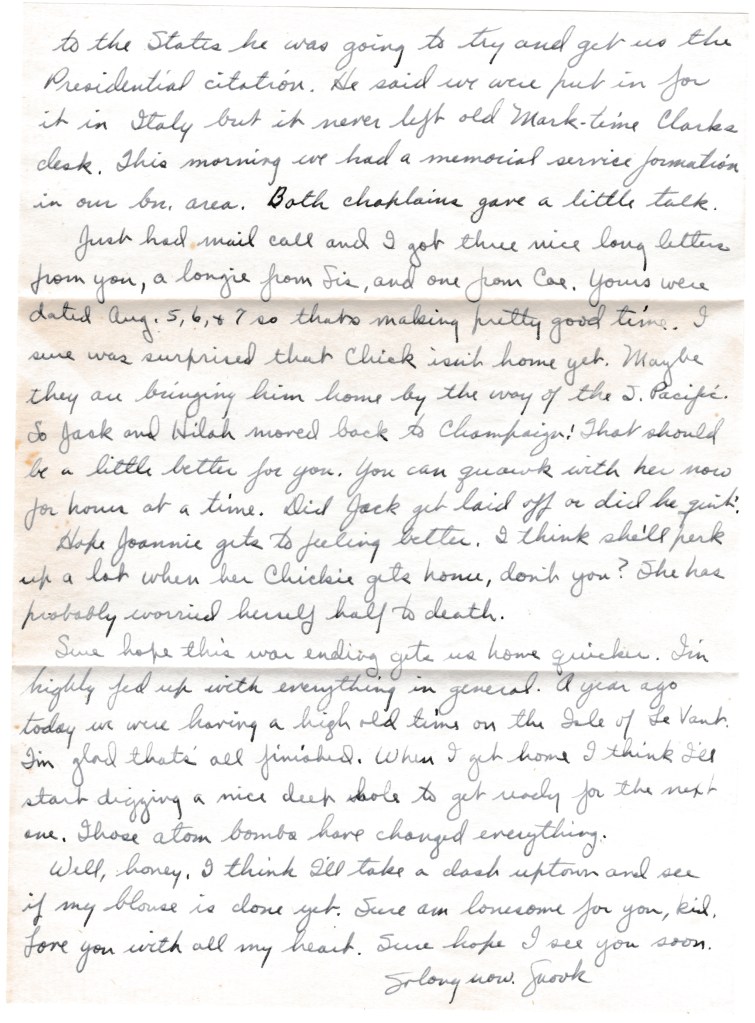 to the States he was going to try and get us the
Presidential citation. He said we were put in for
it in Italy but it never left old Mark-time Clarks
desk. This morning we had a memorial service formation
in our bn. area. Both chaplains gave a little talk.
Just had mail call and I got three nice long letters
from you, a longie from Sis, and one from Coe. Yours were
dated Aug. 5, 6, & 7 so thats making pretty good time. I
sure was surprised that Chick isn't home yet. Maybe
they are bringing him home by the way of the S. Pacific.
So Jack and Wilah moved back to Champaign! That should
be a little better for you. You can quawk with her now
for hours at a time. Did Jack get laid off or did he quit?
Hope Joannie gets to feeling better. I think she'll perk
up a lot when her Chickie gets home, don't you? She has
probably worried herself half to death.
Sure hope this war ending gets us home quicker. I'm
highly fed up with everything in general. A year ago
today we were having a high old time on the Isle of Le Vant.
I'm glad that's all finished. When I get home I think I'll
start digging a nice deep hole to get ready for the next
one. Those atom bombs have changed everything.
Well, honey, I think I'll take a dash uptown and see
if my blouse is done yet. Sure am lonesome for you, kid.
Love you with all my heart. Sure hope I see you soon.
So long now. Snook